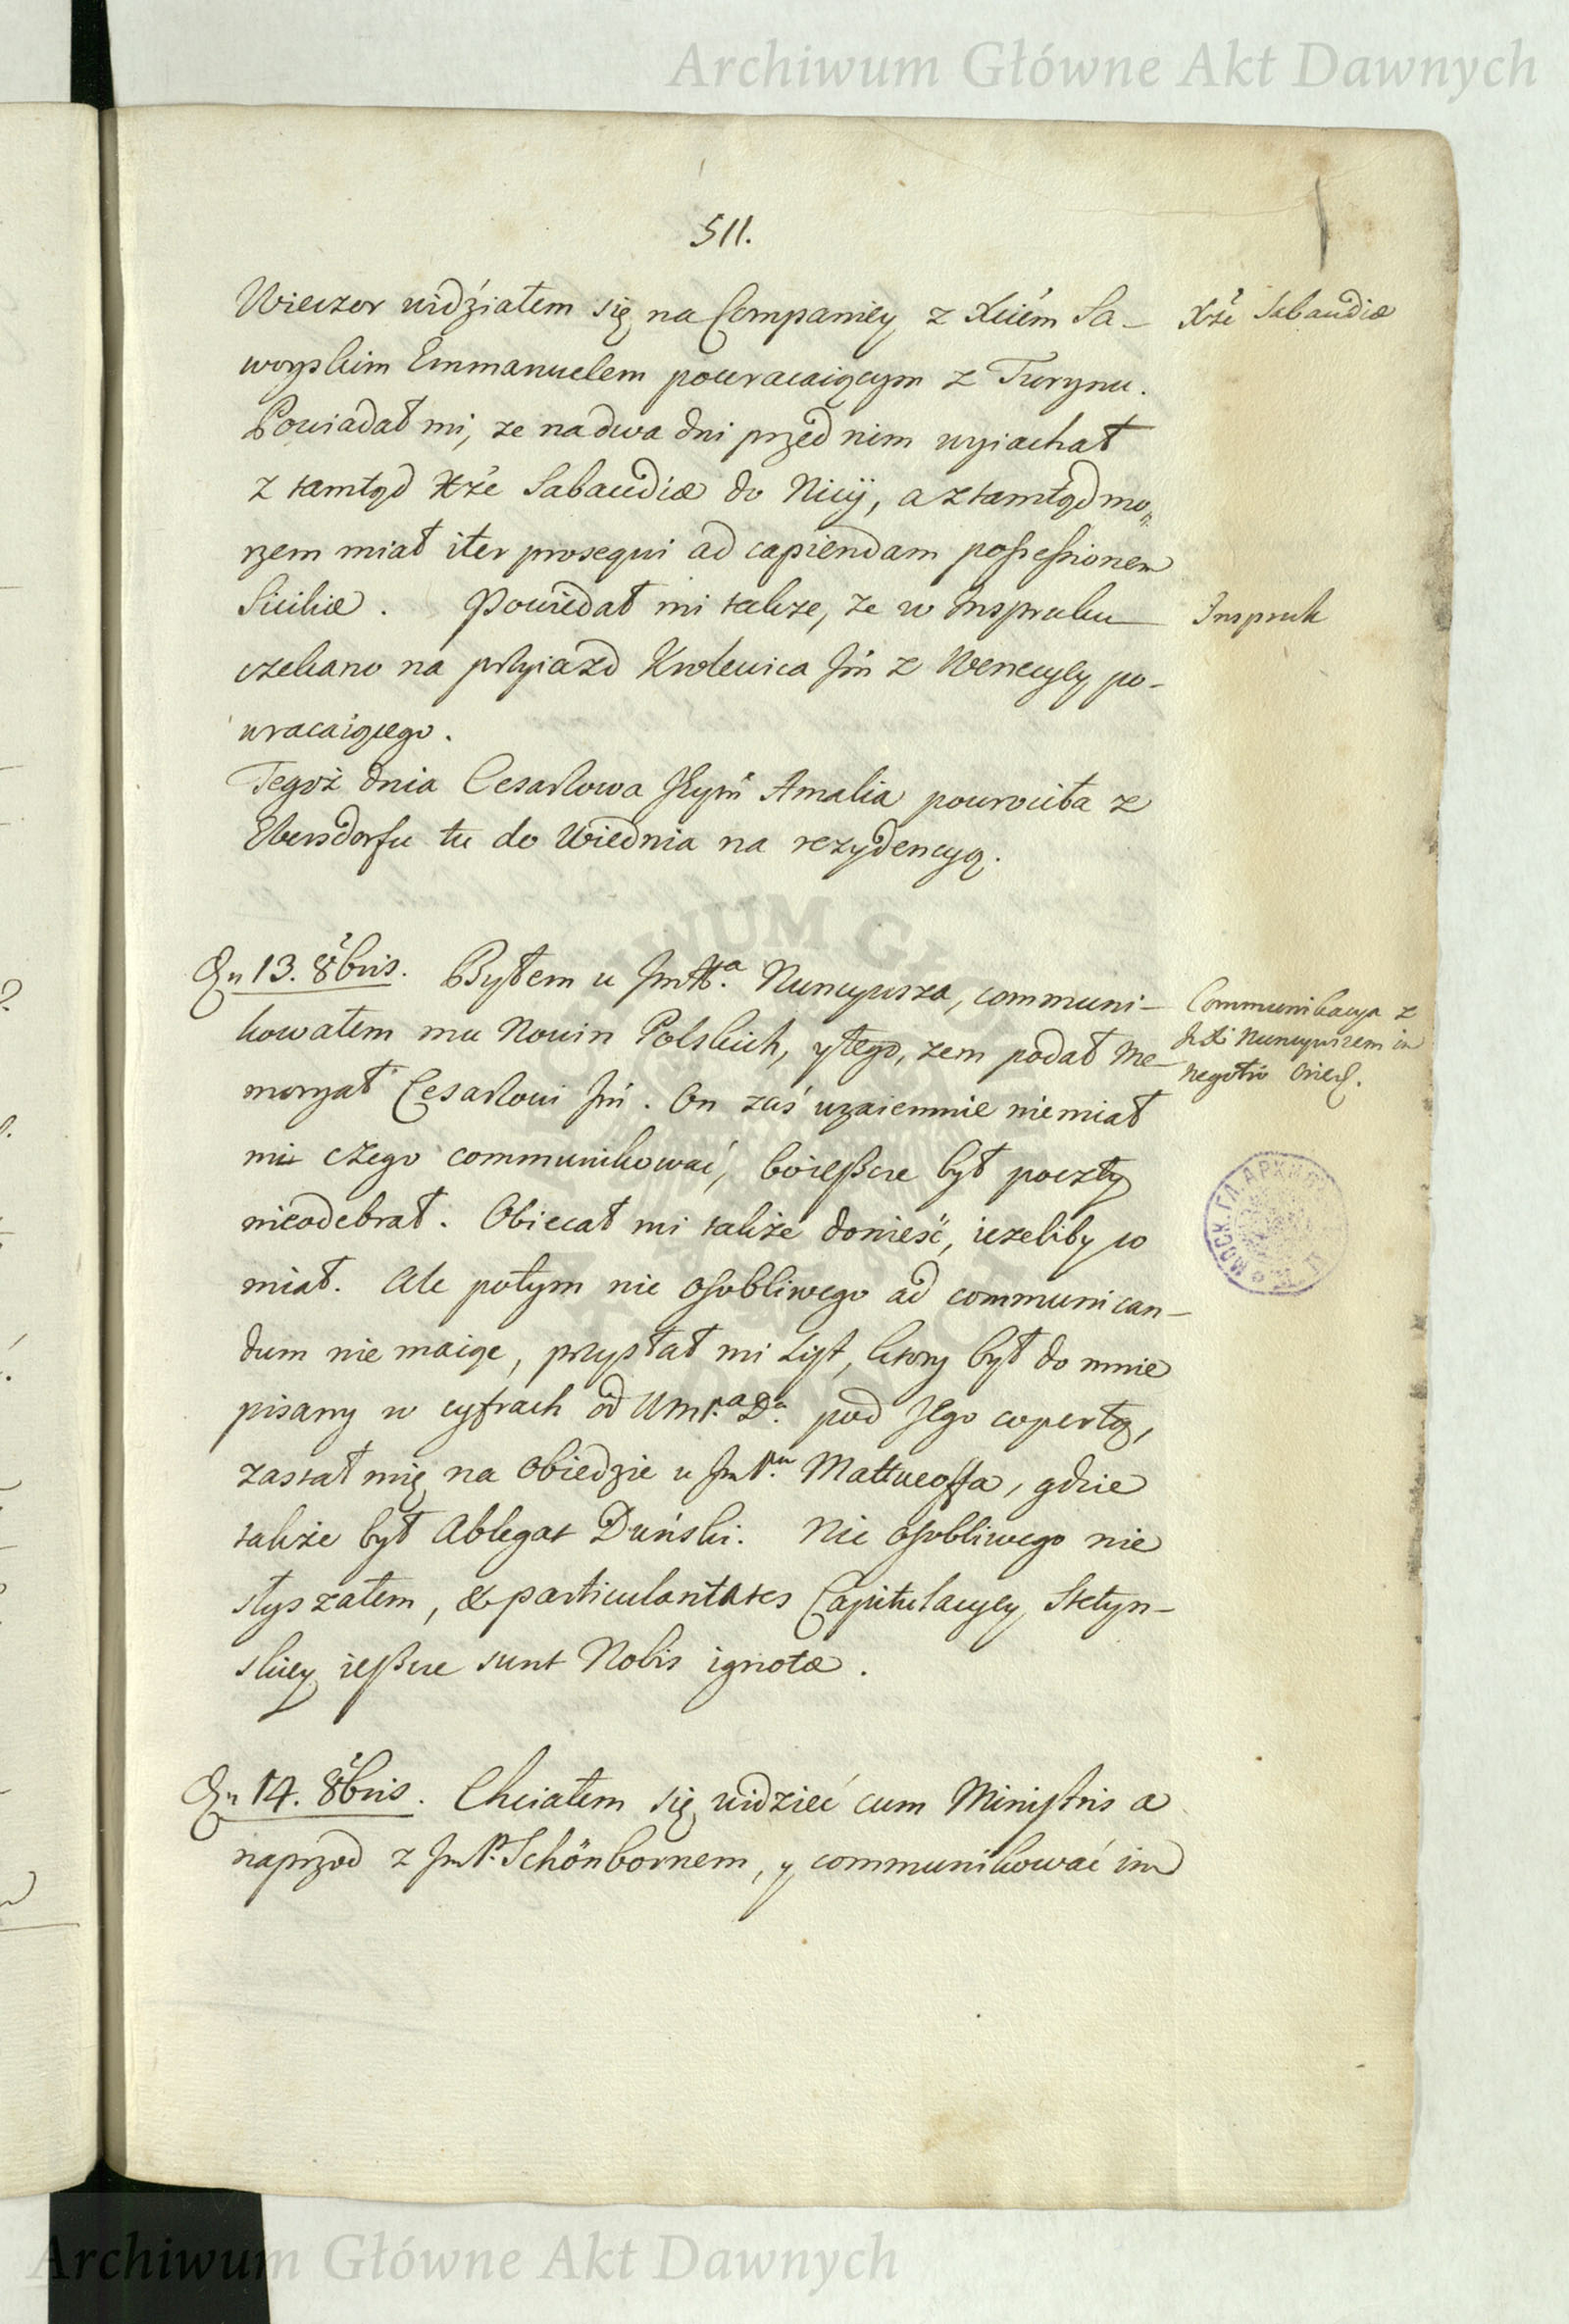 Archiwum Główne Akt Dawnych
511.
Wieczor widziałem się na Companiey z Xciem Sa-
woyskim Emmanuelem powracaiącym z Turynu.
Xże Sabaudiæ
Powiadał mi, ze na dwa dni przed nim wyiachał
z tamtąd Xże Sabaudiæ do Nicij, a ztamtąd mo-
rzem miał iter prosequi ad capiendam possessionem
Siciliæ. Powiedał mi takze, ze w Inspruku
Inspruk
czekano na przyiazd Krolewica Jm z Wenecyey po-
wracaiącego.
Tegoż dnia Cesarzowa Jeym Amalia powrociła z
Ebersdorfu tu do Wiednia na rezydencyą.
Dn 13. 8bris. Byłem u JmXa. Nuncyusza, communi-
kowałem mu Nowin Polskich, y tego, zem podał Me-
moryał Cesarzowi Jm. On zaś wzaiemnie niemiał
Communikacya z
JX Nuncyuszem in
negotio
mi czego communikować, bo ieszcze był poczty
nieodebrał. Obiecał mi także donieść, iezeliby co
miał. Ale potym nic osobliwego ad communican-
dum nie maiąc, przysłał mi List, ktory był do mnie
pisany w cyfrach od WmPa Da. pod Jego copertą,
zastał mię na obiedzie u JmPa Mattueoffa, gdzie
także był Ablegat Duński. Nic osobliwego nie
słyszałem, & particularitates Capitulacyey Stetyn-
skiey ieszcze sunt Nobis ignotæ.
Dn 14. 8bris. Chciałem się widzieć cum Ministris a
naprzod z JmP. Schönbornem, y communikować im
МОСК. ГЛ. АРХИВ
Archiwum Główne Akt Dawnych